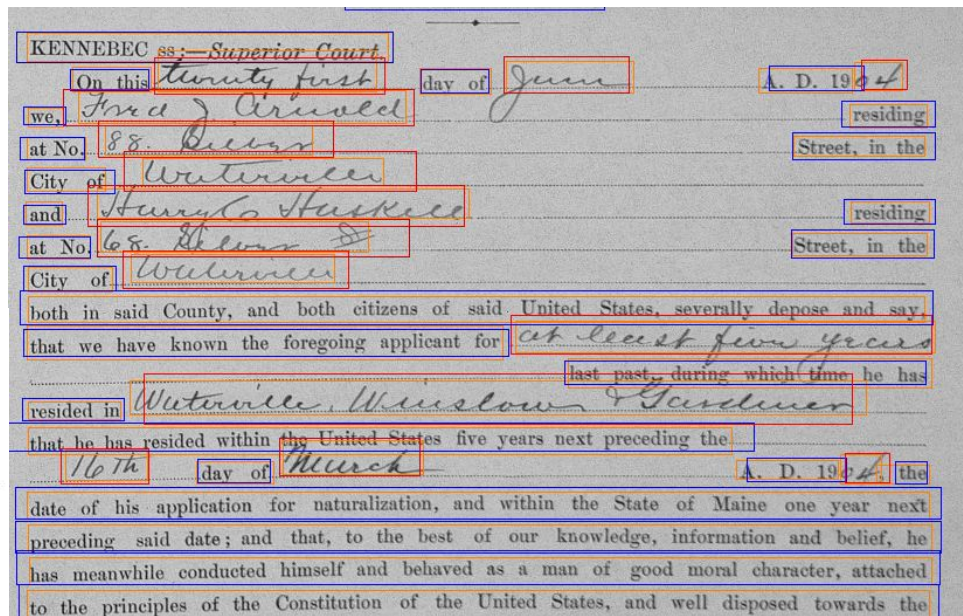 KENNEBEC ss:—Superior Court.
On this twenty first day of June A. D. 1904
we, Fred J. Arnold residing
at No. 88. Silver Street, in the
City of Waterville
and Harry C Haskell residing
at No. 68. Silver St Street, in the
City of Waterville
both in said County, and both citizens of said United States, severally depose and say,
that we have known the foregoing applicant for at least five years
last past, during which time he has
resided in Waterville, Winslow & Gardiner
that he has resided within the United States five years next preceding the
16th day of March A. D. 1904, the
date of his application for naturalization, and within the State of Maine one year next
preceding said date; and that, to the best of our knowledge, information and belief, he
has meanwhile conducted himself and behaved as a man of good moral character, attached
to the principles of the Constitution of the United States, and well disposed towards the